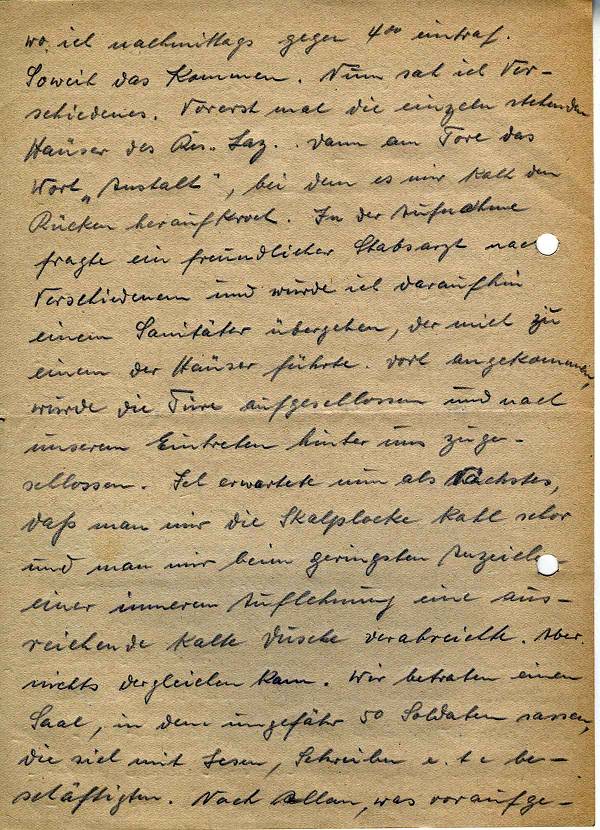 wo ich nachmittags gegen 4⁰⁰ eintraf.
Soweit das Kommen. Nun sah ich Ver-
schiedenes. Vorerst mal die einzeln stehenden
Häuser des Res. Laz.. Dann am Tore das
Wort „Anstalt", bei dem es mir kalt den
Rücken heraufkroch. In der Aufnahme
fragte ein freundlicher Stabsarzt nach
Verschiedenem und wurde ich daraufhin
einem Sanitäter übergeben, der mich zu
einem der Häuser führte. Dort angekommen,
wurde die Türe aufgeschlossen und nach
unserem Eintreten hinter uns zuge-
schlossen. Ich erwartete nun als Nächstes,
daß man mir die Skalplocke kahl schor
und man mir beim geringsten Anzeichen
einer inneren Auflehnung eine aus-
reichende kalte Dusche verabreichte. Aber
nichts dergleichen kam. Wir betraten einen
Saal, in dem ungefähr 50 Soldaten sassen,
die sich mit Lesen, Schreiben e.t.c be-
schäftigten. Nach Allem, was voraufge-